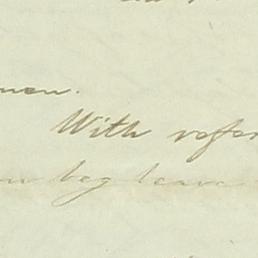 men.
With refer
beg leave